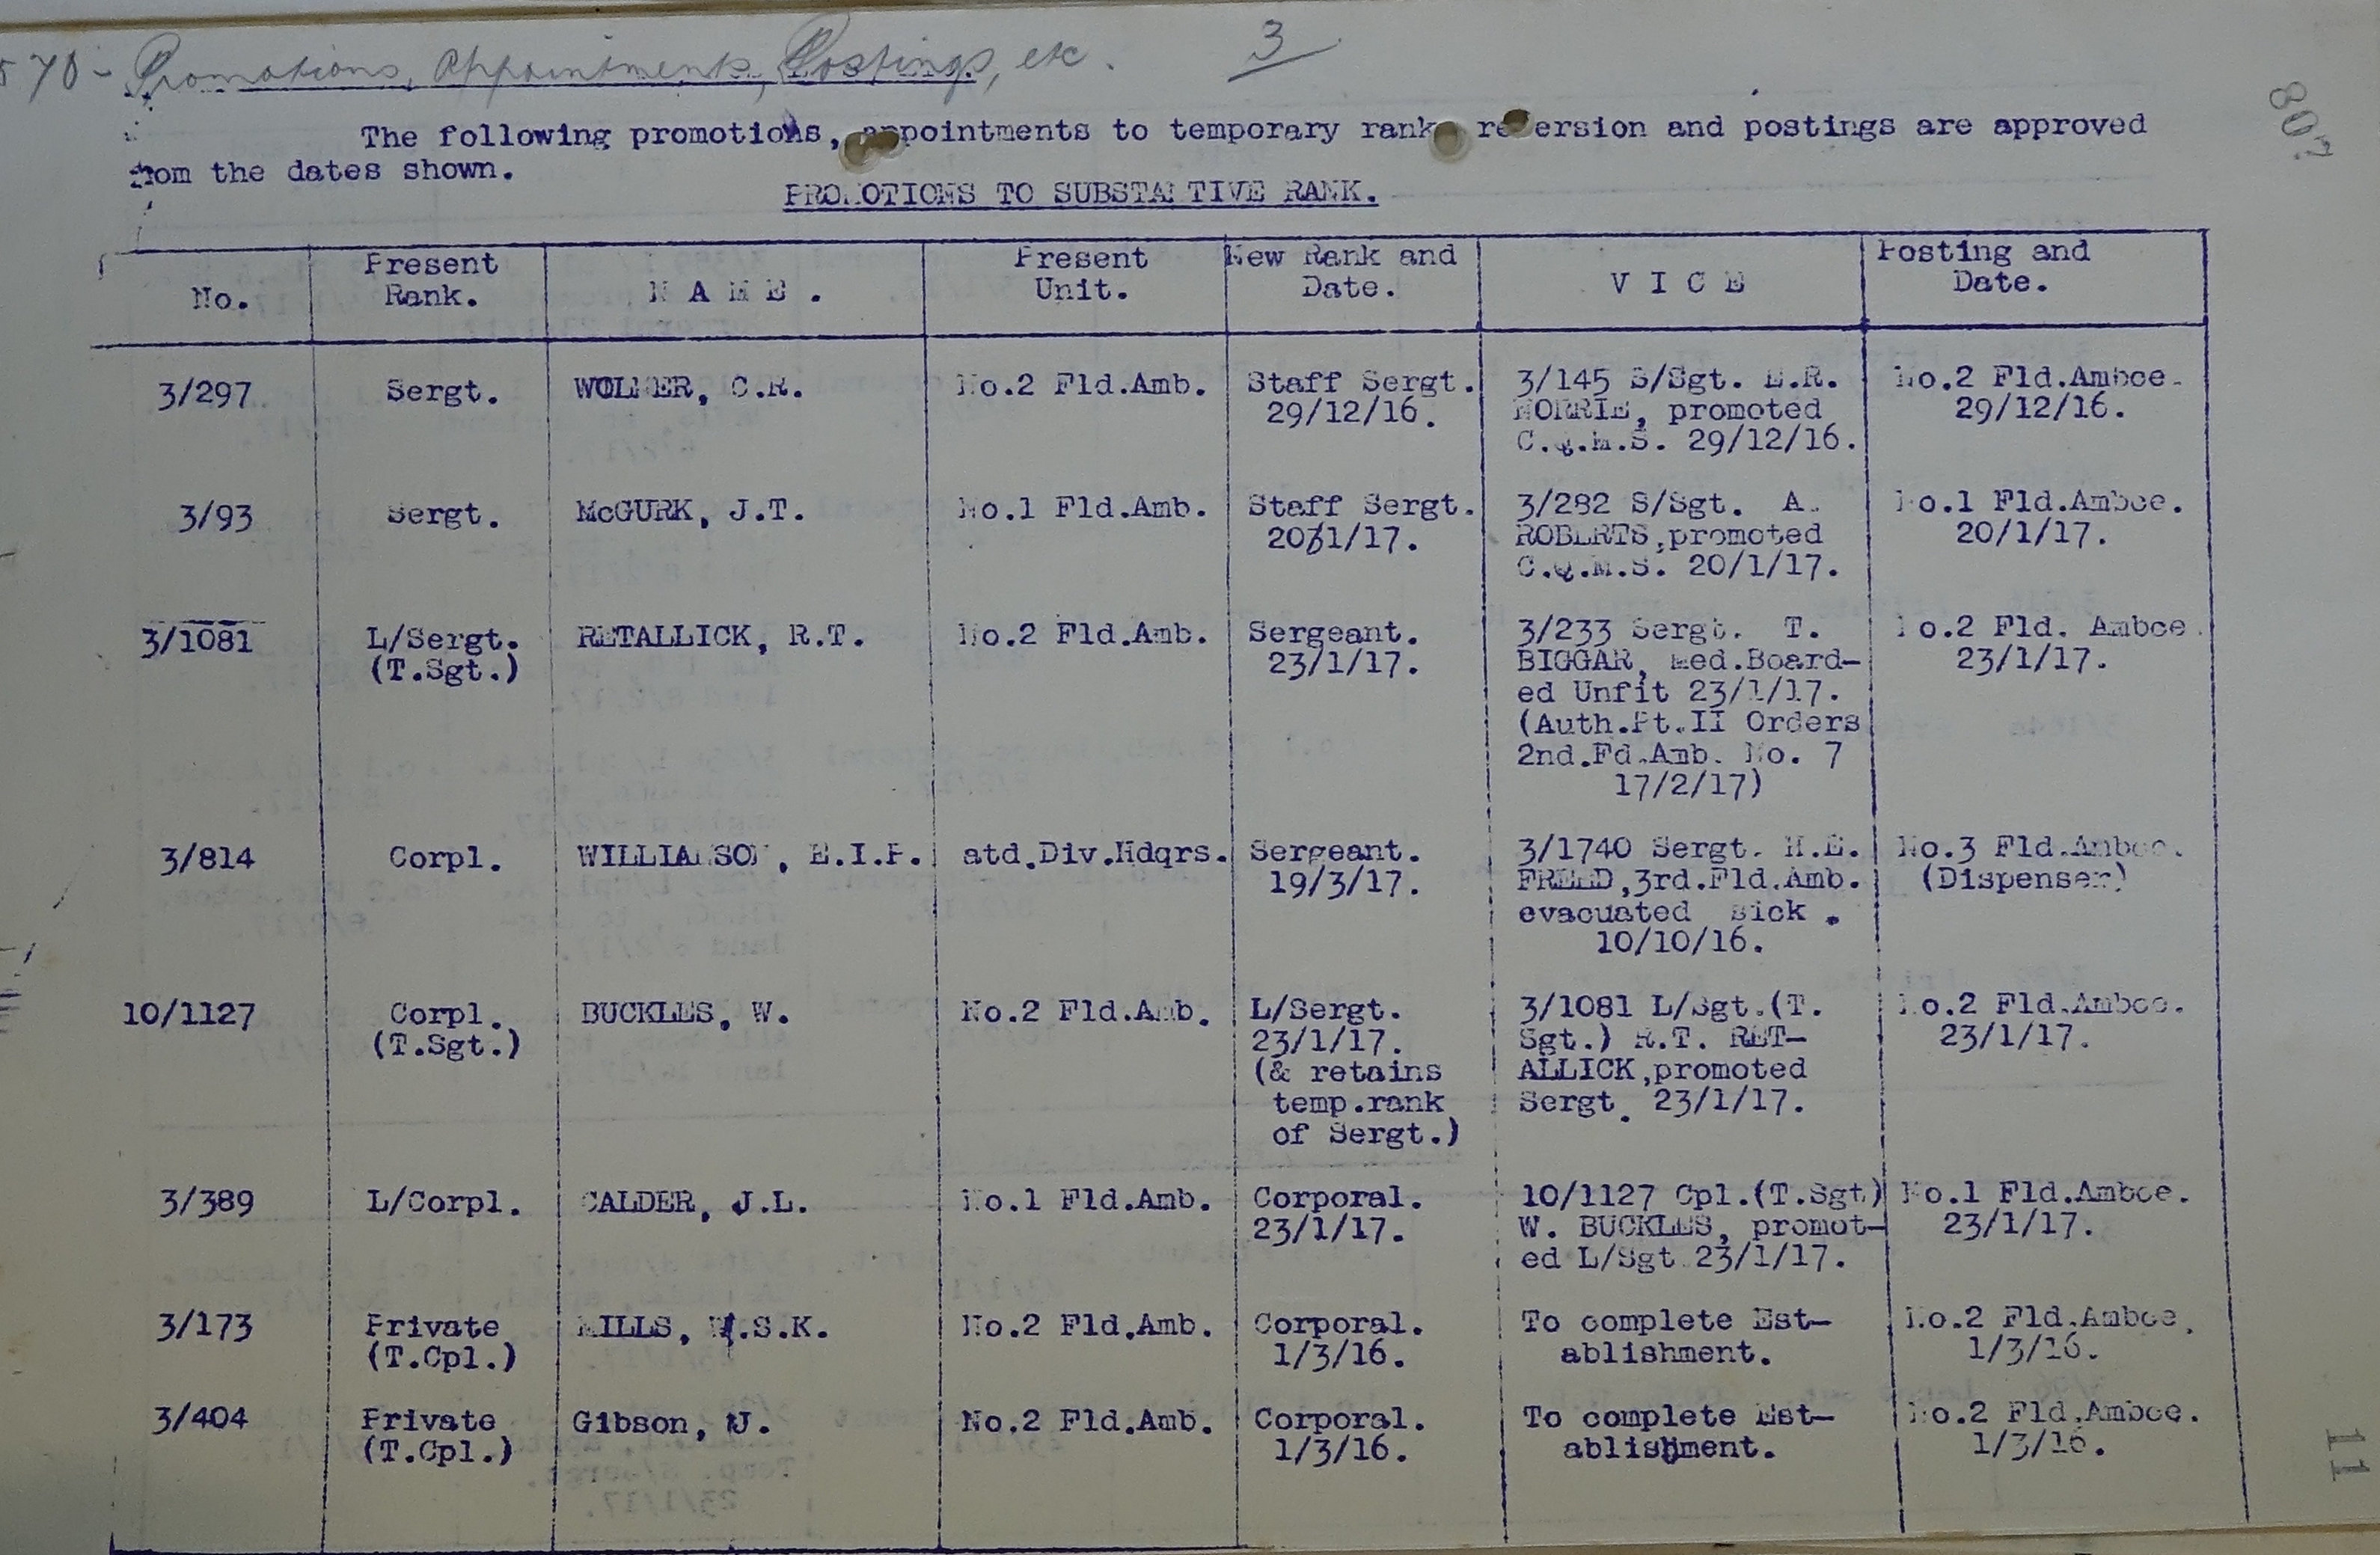 70 - Promotions, Appointments, Postings, etc. 3
807
The following promotions, appointments to temporary rank reversion and postings are approved
from the dates shown.
PROMOTIONS TO SUBSTANTIVE RANK.
No. Present Rank. NAME. Present Unit. New Rank and Date. VICE Posting and Date.
3/297 Sergt. WOLMER, C.R. No.2 Fld.Amb. Staff Sergt. 3/145 S/Sgt. E.R. No.2 Fld.Ambce.
29/12/16. NORRIE, promoted 29/12/16.
C.Q.M.S. 29/12/16.
3/93 Sergt. McGURK, J.T. No.1 Fld.Amb. Staff Sergt. 3/282 S/Sgt. A. No.1 Fld.Ambce.
20/1/17. ROBERTS,promoted 20/1/17.
C.Q.M.S. 20/1/17.
3/1081 L/Sergt. RETALLICK, R.T. No.2 Fld.Amb. Sergeant. 3/233 Sergt. T. No.2 Fld. Ambce.
(T.Sgt.) 23/1/17. BIGGAR, Med.Board- 23/1/17.
ed Unfit 23/1/17.
(Auth.Pt.II Orders
2nd.Fd.Amb. No. 7
17/2/17)
3/814 Corpl. WILLIAMSON, E.I.P. atd.Div.Hdqrs. Sergeant. 3/1740 Sergt. H.E. No.3 Fld.Ambce.
19/3/17. FREED,3rd.Fld.Amb. (Dispenser)
evacuated sick.
10/10/16.
10/1127 Corpl. BUCKLES, W. No.2 Fld.Amb. L/Sergt. 3/1081 L/Sgt.(T. No.2 Fld.Ambce.
(T.Sgt.) 23/1/17. Sgt.) R.T. RET- 23/1/17.
(& retains ALLICK,promoted
temp.rank Sergt. 23/1/17.
of Sergt.)
3/389 L/Corpl. CALDER, J.L. No.1 Fld.Amb. Corporal. 10/1127 Cpl.(T.Sgt) No.1 Fld.Ambce.
23/1/17. W. BUCKLES, promot- 23/1/17.
ed L/Sgt.23/1/17.
3/173 Private MILLS, W.S.K. No.2 Fld.Amb. Corporal. To complete Est- No.2 Fld.Ambce.
(T.Cpl.) 1/3/16. ablishment. 1/3/16.
3/404 Private Gibson, J. No.2 Fld.Amb. Corporal. To complete Est- No.2 Fld.Ambce.
(T.Cpl.) 1/3/16. ablishment. 1/3/16.
11